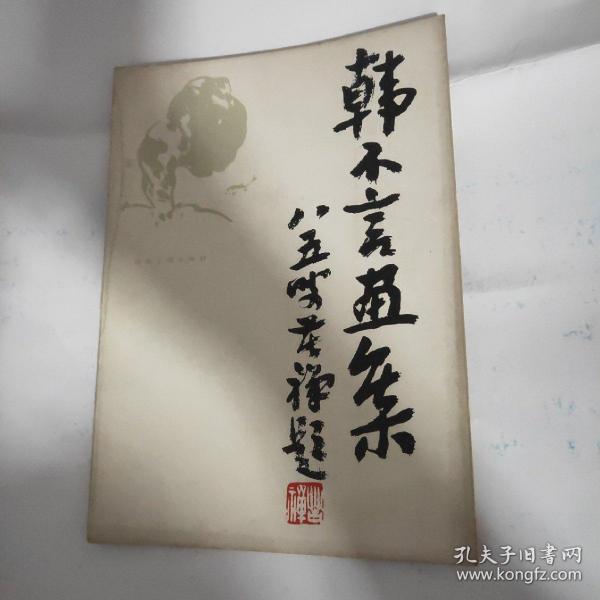 韩不言画集
八五叟苦禅题
苦禅
孔夫子旧书网
www.kongfz.com